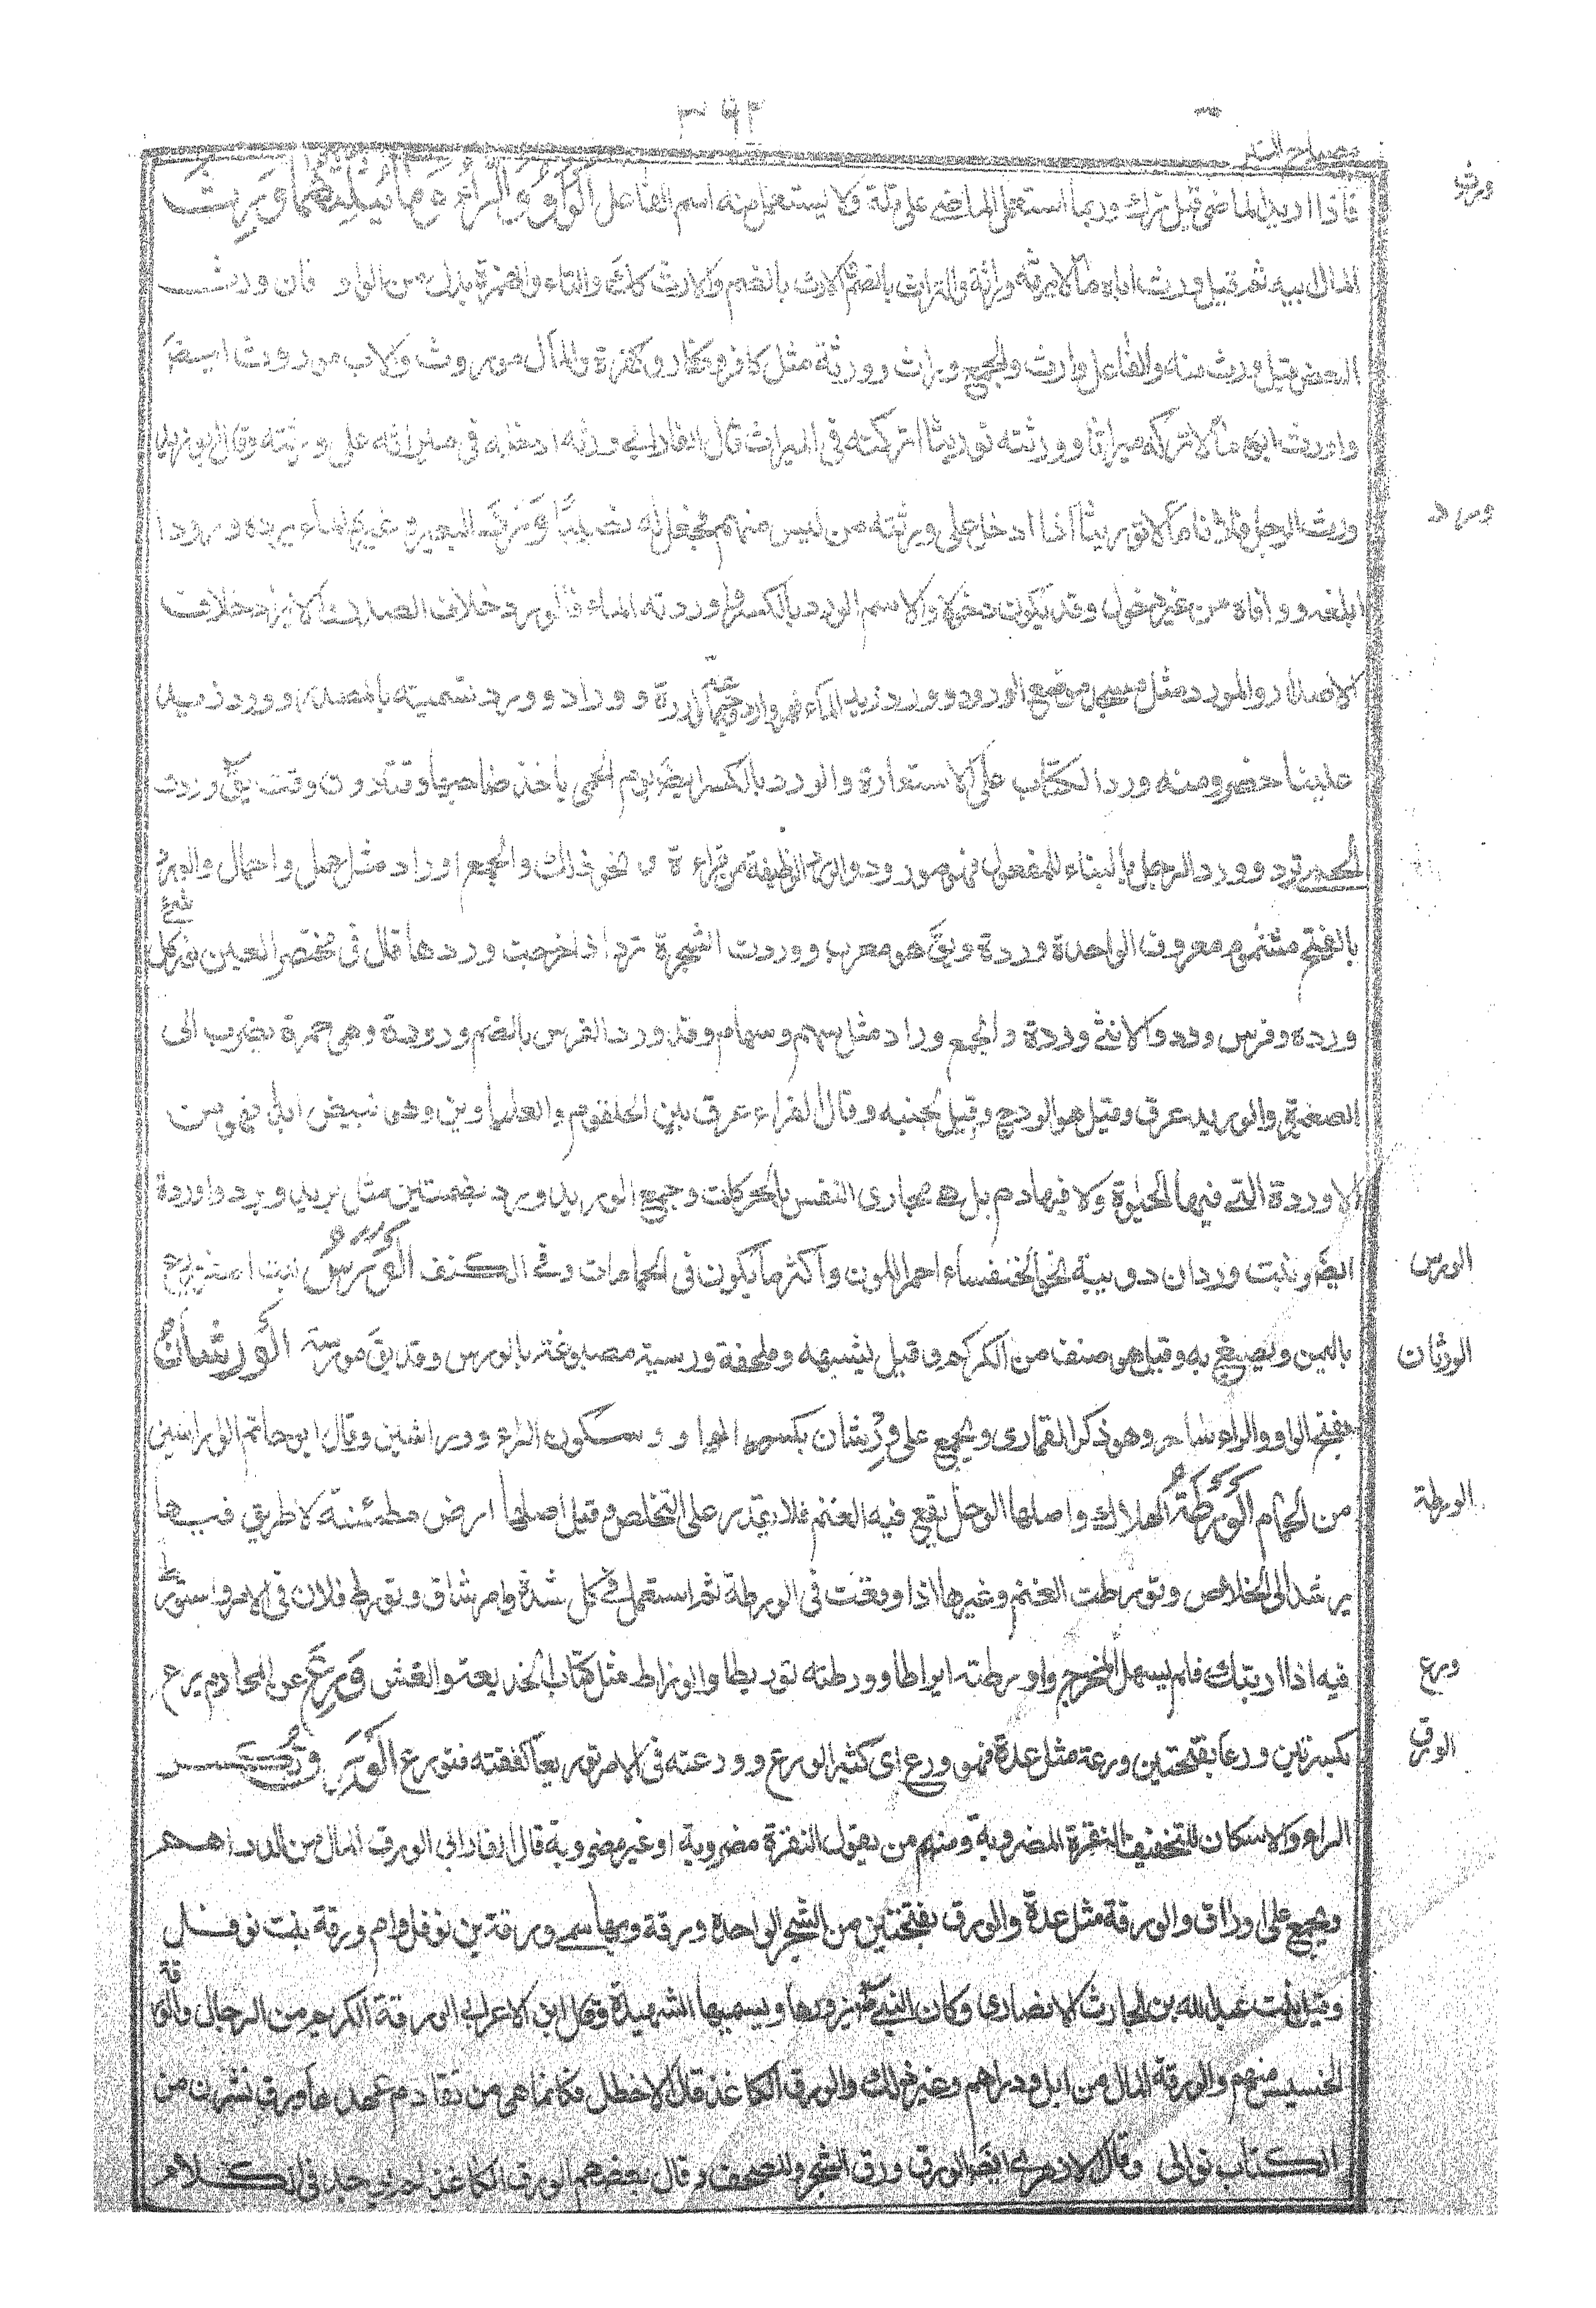 ٣٩٢
مصباح المنير
ورث
فاذا اريد الماضي قيل ترك وربما استعمل الماضي على قلة ولا يستعمل منه اسم الفاعل الواو والراء وما يثلثهما ورث
المال ابيه ثم قيل ورث اباه مالا يرثه وراثة والتراث بالضم والارث كذلك والتاء والهمزة بدل من الواو فان ورث
البعض قيل ورث منه والفاعل وارث والجمع وراث وورثة مثل كافر وكفار وكفرة والمال موروث والاب موروث ايضا
واورثه ابوه مالا تركه ميراثا وورثته توريثا اشركته في الميراث قال الفارابي ورثه ادخله في ماله على ورثته وقال ابو زيد
ورد
ورث الرجل فلانا مالا توريثا اذا ادخل على ورثته من ليس منهم فجعل له نصيبا ورد البعير وغيره الماء يرده ورودا
بلغه ووافاه من غير دخول وقد يكون دخولا والاسم الورد بالكسر واوردته الماء فالورد خلاف الصدر والايراد خلاف
الاصدار والمورد مثل مسجد موضع الورود وورد زيد الماء فهو وارد وجماعة واردة ووراد وورد تسمية بالمصدر وورد زيد
علينا حضر ومنه ورد الكتاب على الاستعارة والورد بالكسر ايضا يوم الحمى ياخذ صاحبها وقتا دون وقت يق وردت
الحمى ترد وورد الرجل بالبناء للمفعول فهو مورود والورد الوظيفة من قراءة و نحو ذلك والجمع اوراد مثل حمل واحمال والورد
بالفتح مشموم معروف الواحدة وردة ويق هو معرب ووردت الشجرة ترد اذا اخرجت وردها قال في مختصر العين نور كل شئ
ورده وفرس ورد والانثى وردة والجمع وراد مثل سهم وسهام وقد ورد الفرس بالضم ورودة وهي حمرة تضرب الى
الصفرة والوريد عرق وقيل هو الودج وقيل بجنبه وقال الفراء عرق بين الحلقوم والعلباوين وهو ينبض ابدا فهو من
الاوردة التي فيها الحيوة ولا فيها دم بل هي مجاري النفس بالحركات وجمع الوريد ورد بضمتين مثل بريد وبرد واوردة
الورس
ايضا وبنت وردان دويبة نحو الخنفساء احمر اللون واكثر ما يكون في الحمامات وفي الكنف الورس نبت اصفر يزرع
الورشان
باليمن ويصبغ به وقيل هو صنف من الكركم وقيل يشبهه وملحفة ورسية مصبوغة بالورس وقد يق مورسة الورشان
بفتح الواو والراء ساق حر وهو ذكر القماري ويجمع على ورشان بكسر الواو وسكون الراء ووراشين وقال ابو حاتم الوراشين
الورطة
من الحمام الورطة الهلاك واصلها الوحل يقع فيه الغنم فلا يقدر على التخلص وقيل اصلها ارض مطمئنة لا طريق فيها
يرشد الى الخلاص وتورطت الغنم وغيرها اذا وقعت في الورطة ثم استعمل في كل شدة وامر شاق وتورط فلان في الامر واستورط
ورع
فيه اذا ارتبك فلم يسهل المخرج واورطته ايراطا وورطته توريطا والوراط مثل كتاب الخديعة والغش ورع عن المحارم يرع
الورق
بكسرتين ورعا بفتحتين ورعة مثل عدة فهو ورع اي كثير الورع وورعته في الامر توريعا كففته فتورع الورق وتكسر
الراء والاسكان للتخفيف النقرة المضروبة ومنهم من يقول النقرة مضروبة او غير مضروبة قال الفارابي الورق المال من الدراهم
ويجمع على اوراق والورقة مثل عدة والورق بفتحتين من الشجر الواحدة ورقة وبها سمي ورقة بن نوفل وام ورقة بنت نوفل
وقيل بنت عبد الله بن الحارث الانصاري وكان النبي يزورها ويسميها الشهيدة وقال ابن الاعرابي الورقة الكريم من الرجال والورقة
الخسيس منهم والورقة المال من ابل ودراهم وغير ذلك والورق الكاغذ قال الاخطل فكانما هي من تقادم عهدها ورق نشرن من
الكتاب بوالي وقال الازهري ايضا الورق ورق الشجر والمصحف وقال بعضهم الورق الكاغذ لم يوجد في الكلام